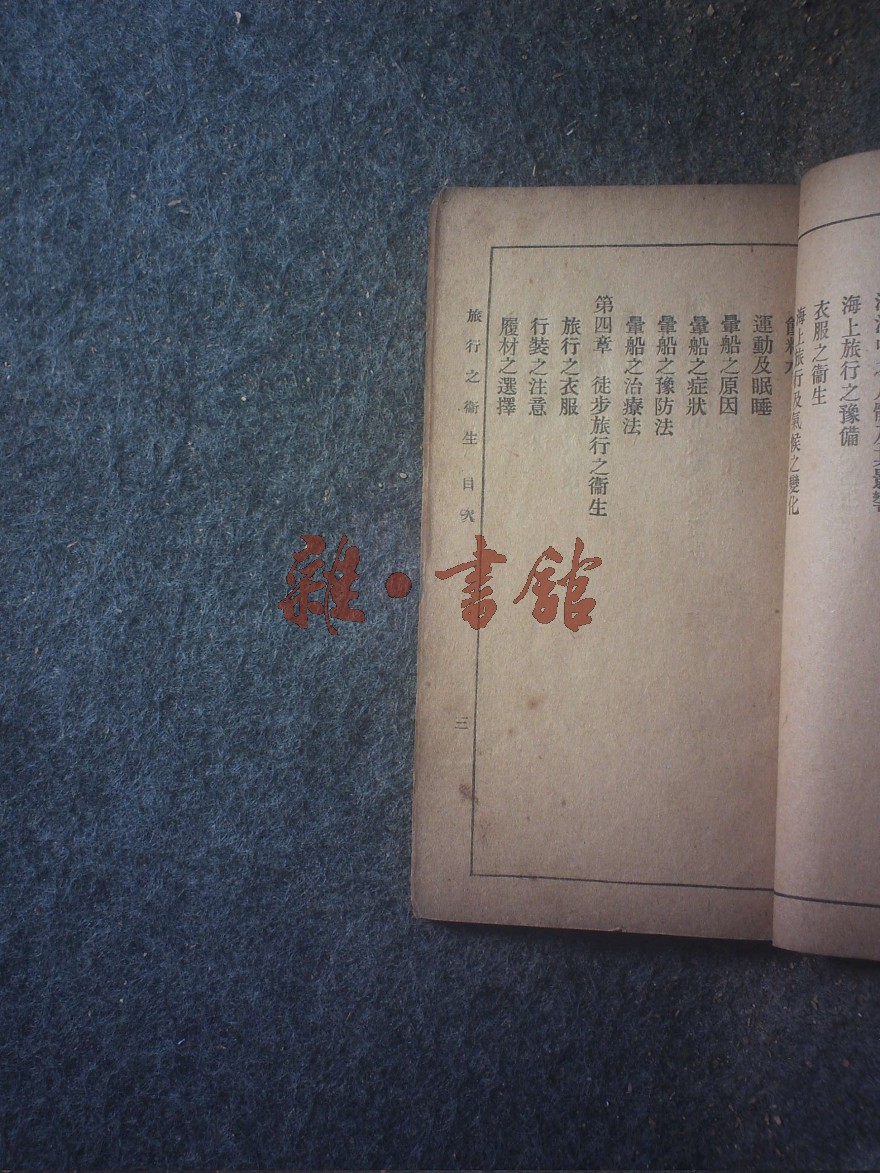 海上旅行之豫備
衣服之衞生
海上旅行及氣候之變化
運動及眠睡
暈船之原因
暈船之症狀
暈船之豫防法
暈船之治療法
第四章 徒步旅行之衞生
旅行之衣服
行裝之注意
履材之選擇
旅行之衞生 目次 三
雜·書館